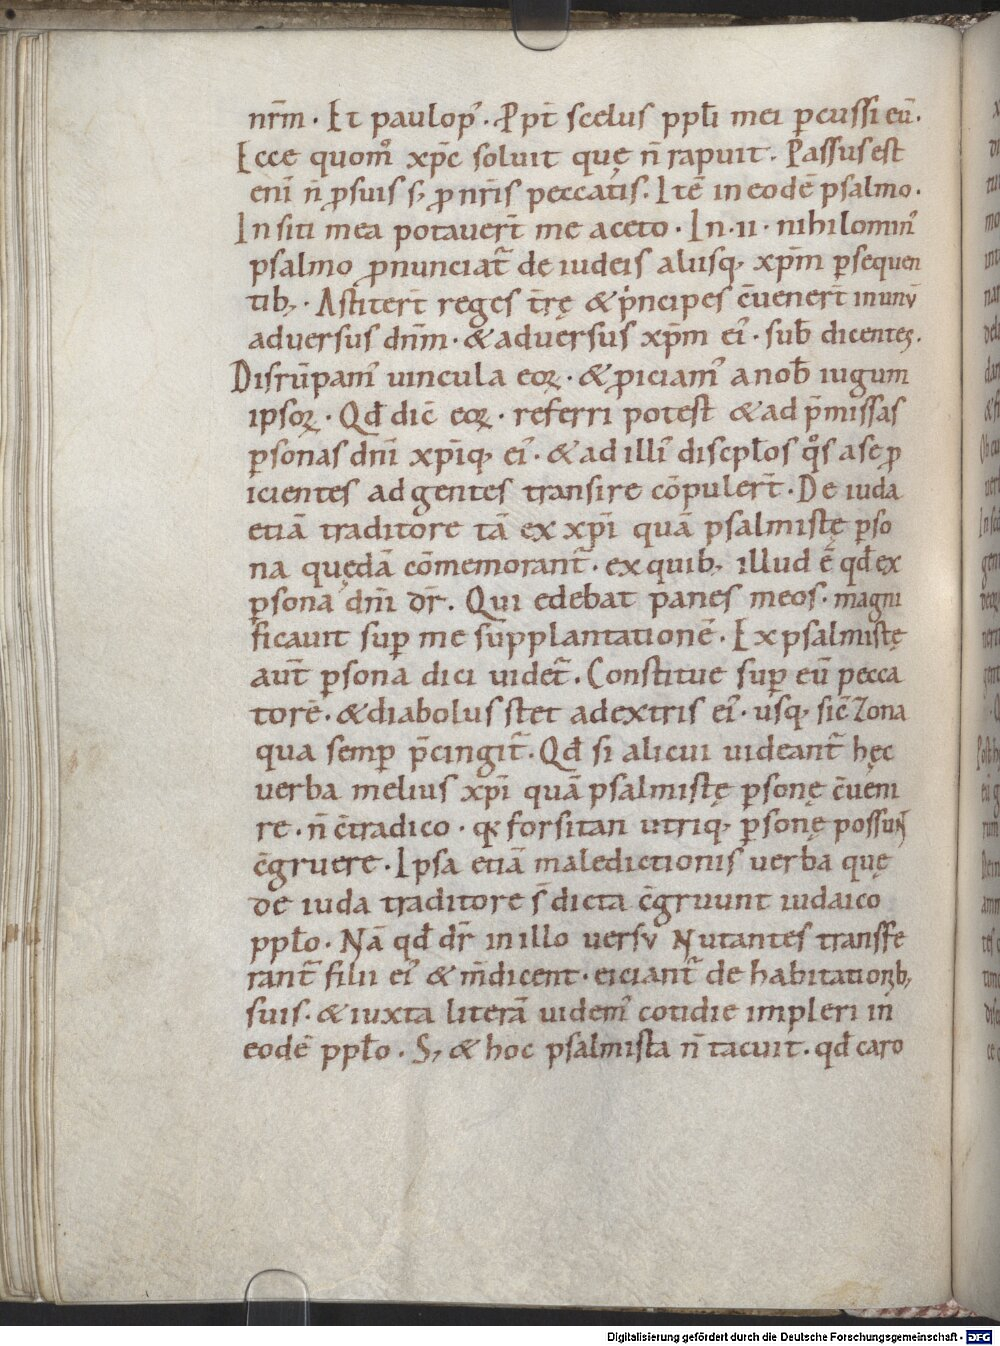 nr̄m · Et paulop᷒ · Ꝓpt̄ scelus ppl̄i mei ꝑcussi eū .
Ecce quom̊ xp̄c soluit que n̄ rapuit . Passus est
eni̅ n̄ ꝓ suis s; ꝓ nr̄is peccatis . Itē in eodē psalmo .
In siti mea potauer̄t me aceto · In · ii · nihilomin᷒
psalmo ꝓnunciat̄ de iudeis aliisq; xp̄m ꝑsequen
tib; · Astiter̄t reges t̄rę & p̍ncipes c̄uener̄t in unū
adversus dn̄m · & adversus xp̄m ei᷒ · sub̄ dicentes .
Disrūpam᷒ uincula eoꝝ · & ꝓiciam᷒ a nob̄ iugum
ipsoꝝ · Qd̄ dic̄ eoꝝ · referri potest & ad p̄missas
ꝑsonas dn̄i xp̄iq; ei᷒ · & ad illi᷒ discpl̄os q̊s a se ꝓ
icientes ad gentes transire cōpuler̄t · De iuda
etiā traditore tā ex xp̄i quā psalmistę ꝑso
na quędā cōmemorant̄ · ex quib; illud ē qd̄ ex
ꝑsona dn̄i dr̄ . Qui edebat panes meos · magni
ficauit suꝑ me sūpplantationē · Ex psalmistę
aut̄ ꝑsona dici uidet̄ . Constitue suꝑ eū pecca
torē · & diabolus stet a dextris ei᷒ · usq; sic̄ Zona
qua semꝑ p̄cingit̄ · Qd̄ si alicui uideant̄ hęc
uerba melius xp̄i quā psalmistę ꝑsonę c̄ueni
re · n̄ c̄tradico · q; forsitan utriq; ꝑsonę possunt
c̄gruere · Ipsa etiā maledictionis uerba quę
de iuda traditore s̄ dicta c̄gruunt iudaico
ppl̄o · Nā qd̄ dr̄ in illo uersu Nutantes transfe
rant̄ filii ei᷒ & m̄dicent · eiciant̄ de habitationib;
suis · & iuxta literā uidem᷒ cotidie impleri in
eodē ppl̄o · S; & hoc psalmista n̄ tacuit · qd̄ caro
Digitalisierung gefördert durch die Deutsche Forschungsgemeinschaft · DFG
DFG